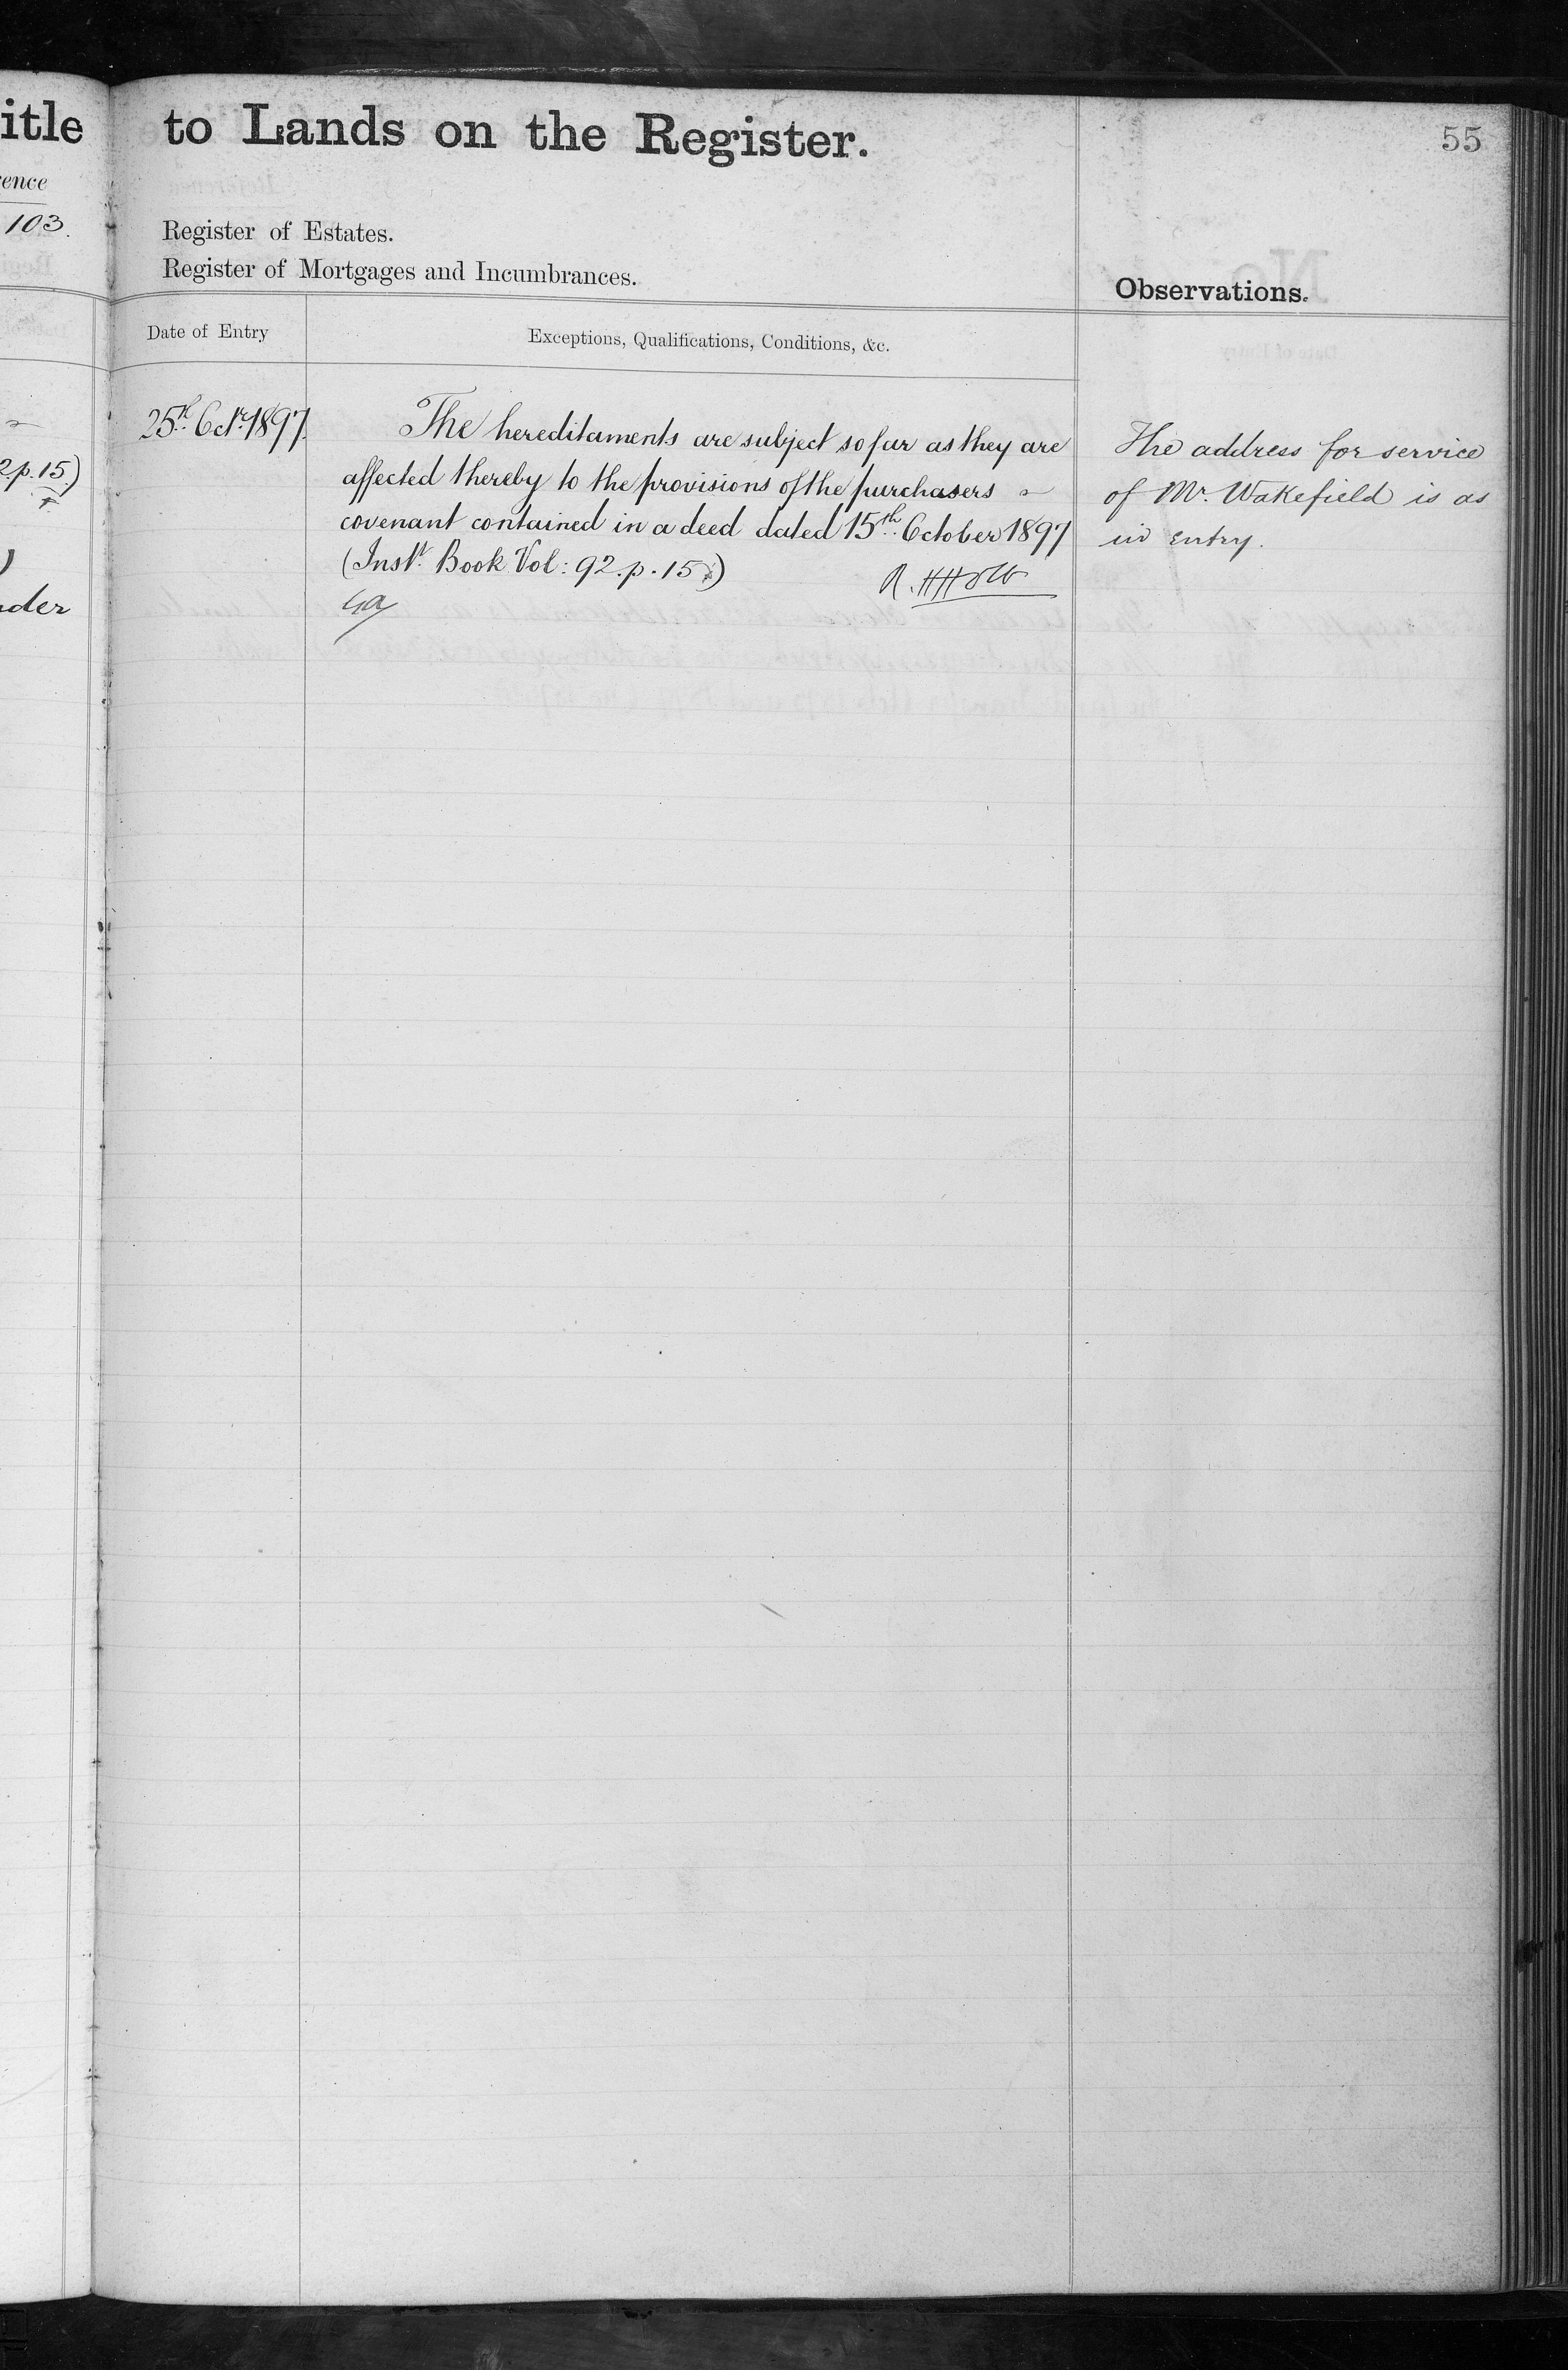 itle to Lands on the Register.
55
ence
103.
Register of Estates.
Register of Mortgages and Incumbrances.
Observations.
Date of Entry
Exceptions, Qualifications, Conditions, &c.
25th Octr. 1897.
The hereditaments are subject so far as they are
affected thereby to the provisions of the purchasers
covenant contained in a deed dated 15th October 1897
(Inst. Book Vol: 92. p. 15.)
The address for service
of Mr. Wakefield is as
in Entry.
2 p. 15.)
nder